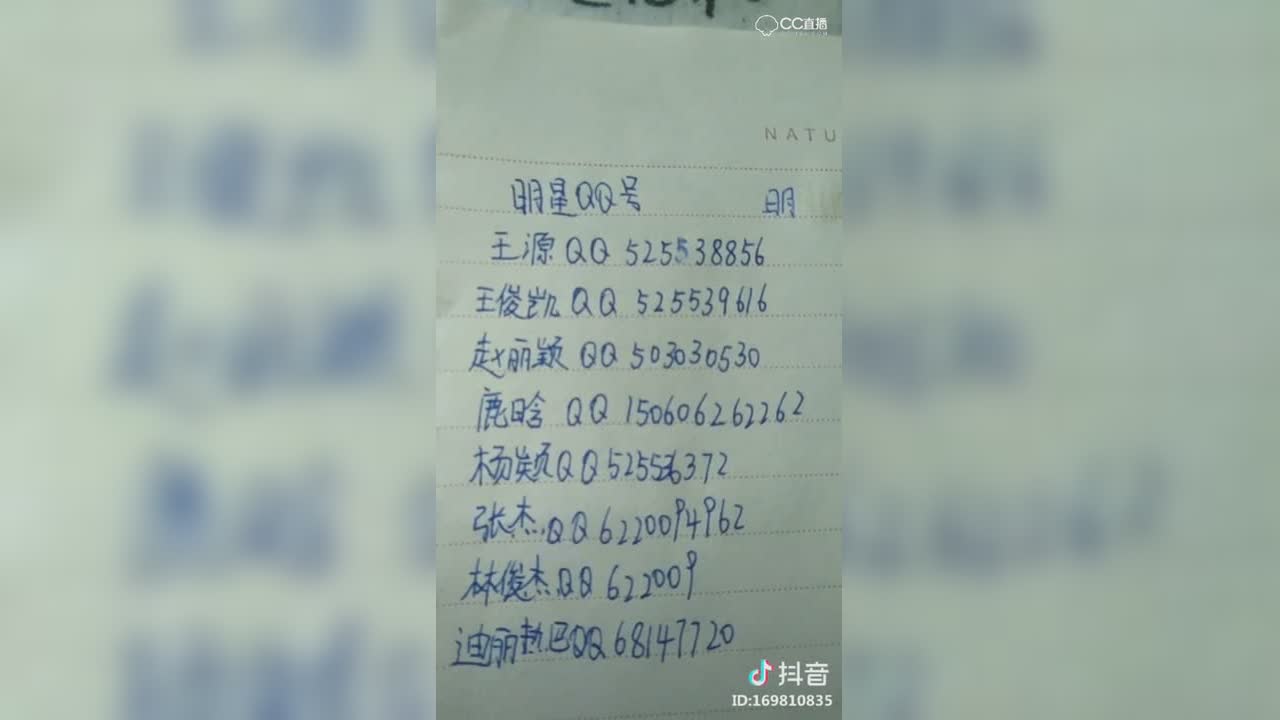 CC直播
NATU
明星QQ号 明
王源QQ 525538856
王俊凯QQ 525539616
赵丽颖 QQ 503030530
鹿晗 QQ 150606262262
杨颖QQ 52556372
张杰QQ 6220094962
林俊杰QQ 622009
迪丽热巴QQ 68147720
抖音
ID:169810835